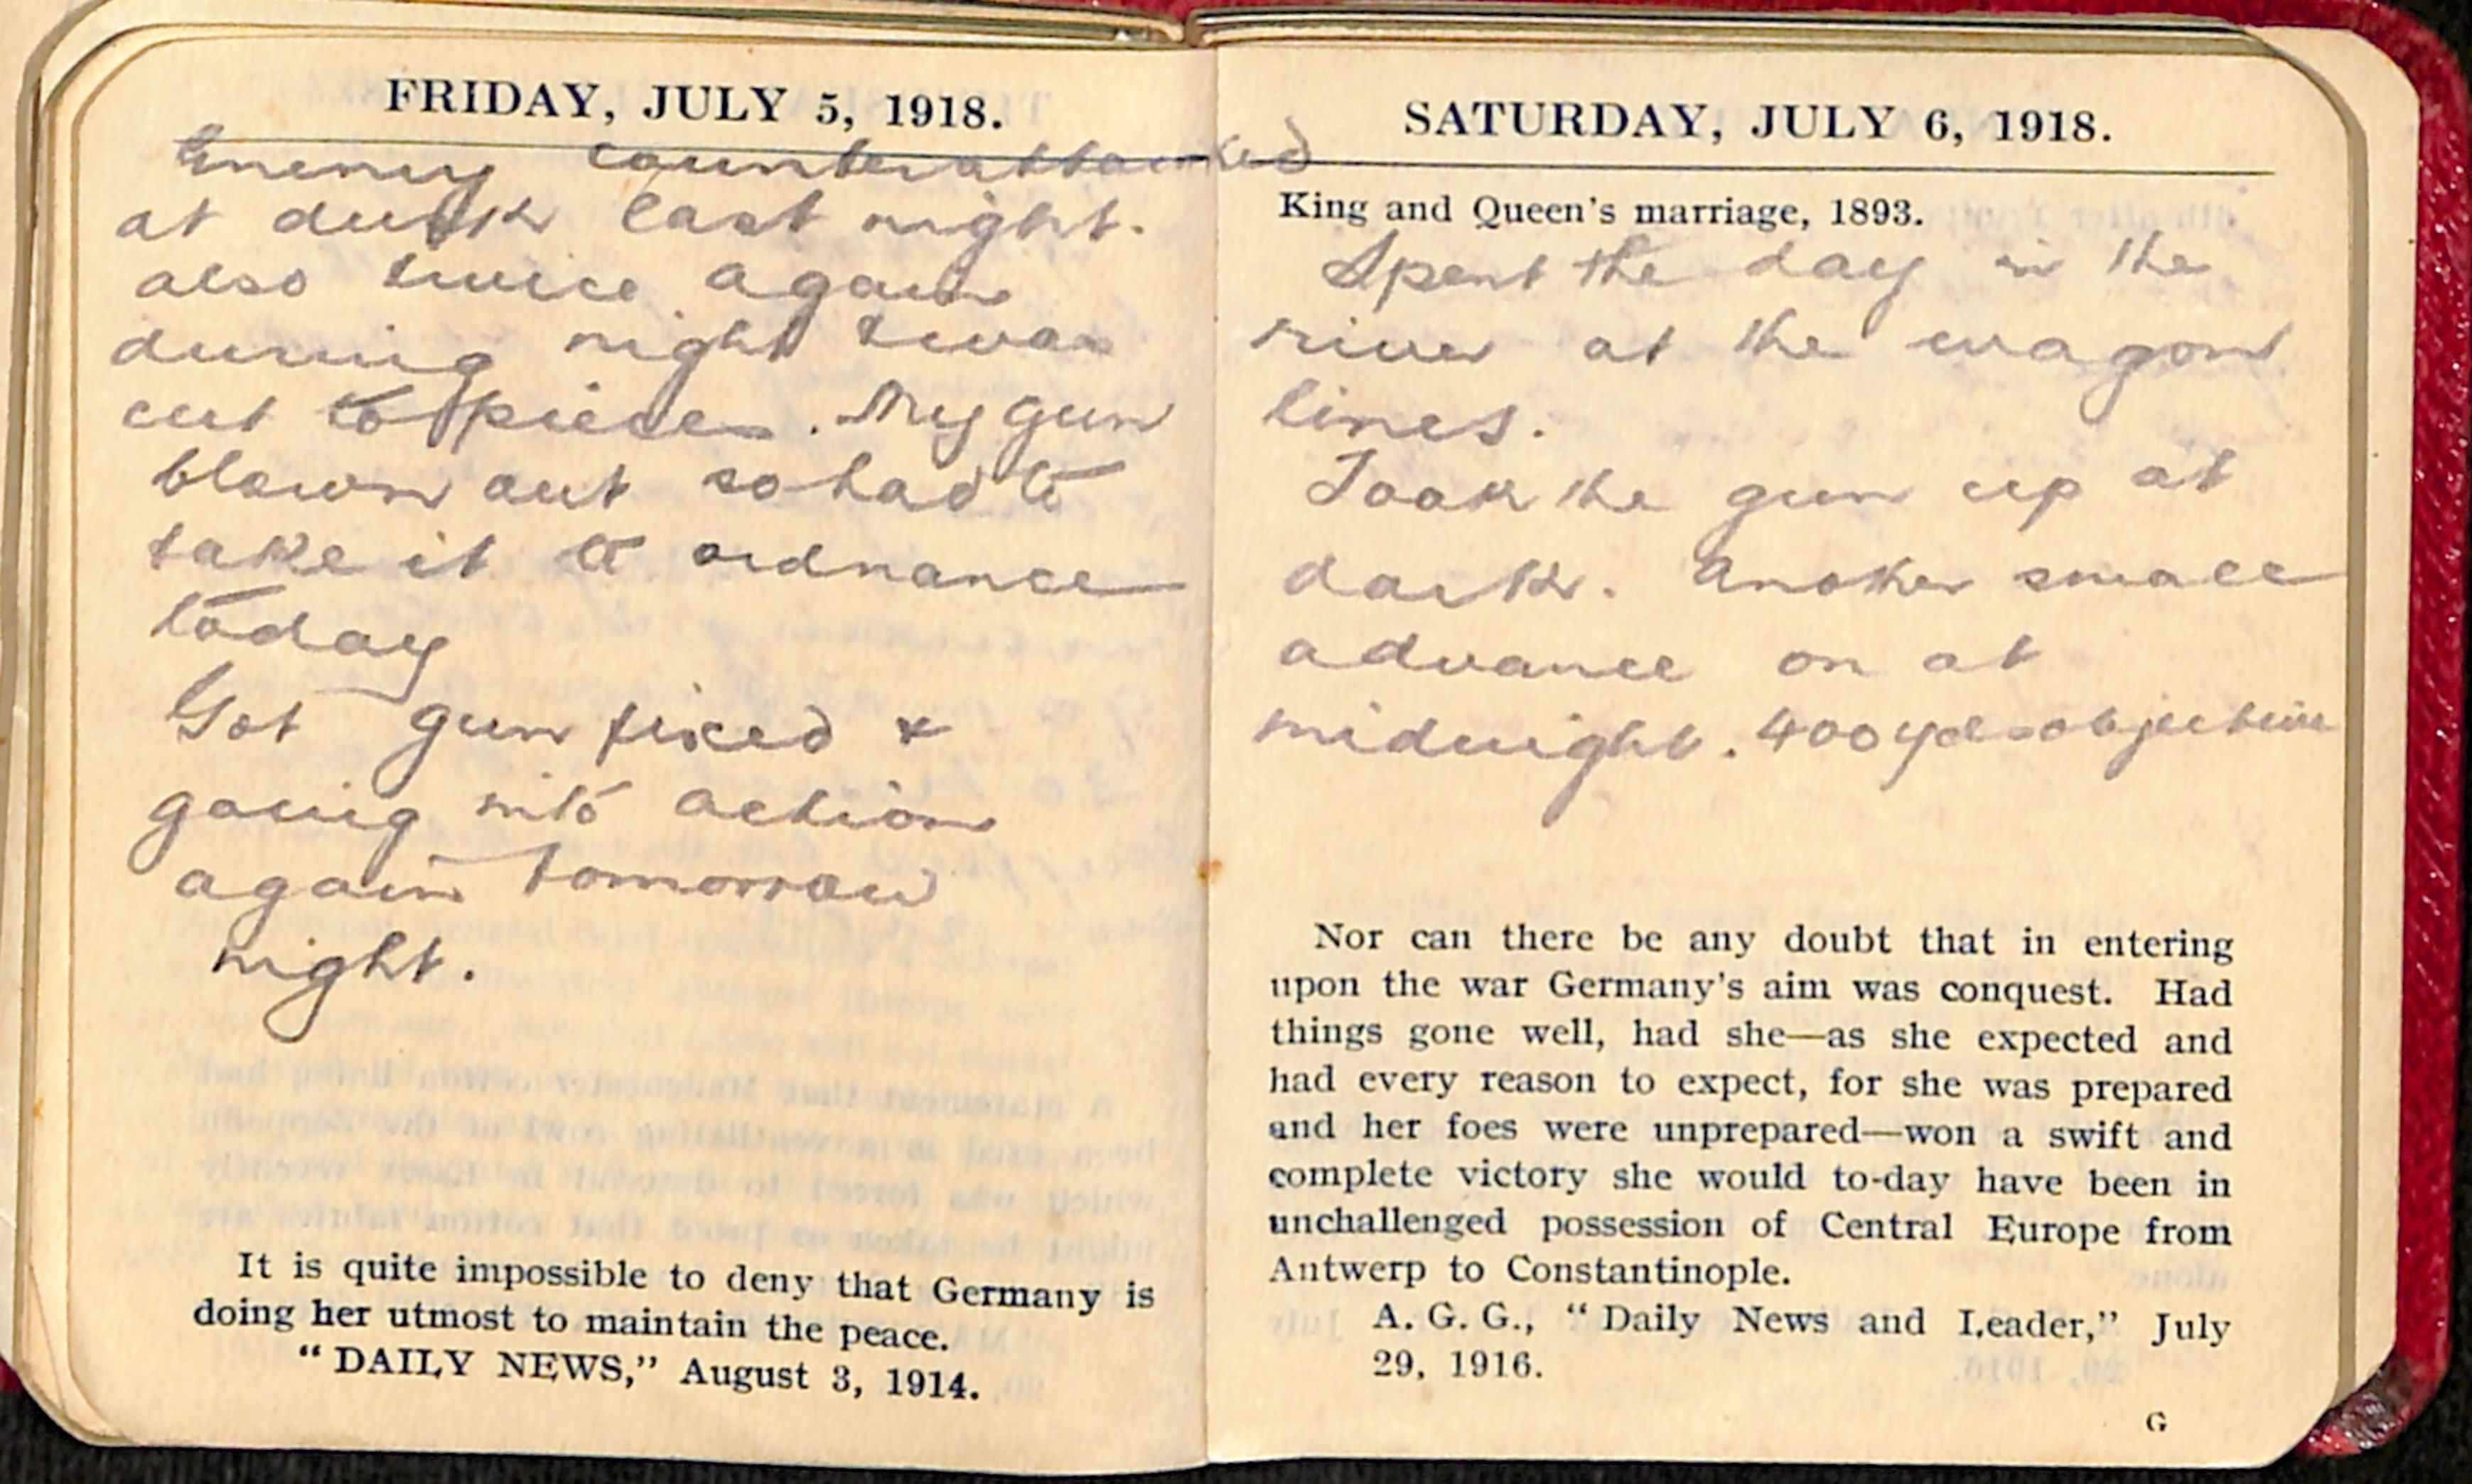 FRIDAY, JULY 5, 1918.
Enemy counterattacked
at dusk last night.
also twice again
during night & was
cut to pieces. My gun
blown out so had to
take it to ordnance
today
Got gun fixed &
going into action
again tomorrow
night.
It is quite impossible to deny that Germany is
doing her utmost to maintain the peace.
"DAILY NEWS," August 3, 1914.
SATURDAY, JULY 6, 1918.
King and Queen's marriage, 1893.
Spent the day in the
river at the wagon
lines.
Took the gun up at
dark. Another small
advance on at
midnight. 400 yds objective
Nor can there be any doubt that in entering
upon the war Germany's aim was conquest. Had
things gone well, had she—as she expected and
had every reason to expect, for she was prepared
and her foes were unprepared—won a swift and
complete victory she would to-day have been in
unchallenged possession of Central Europe from
Antwerp to Constantinople.
A. G. G., "Daily News and Leader," July
29, 1916.
G